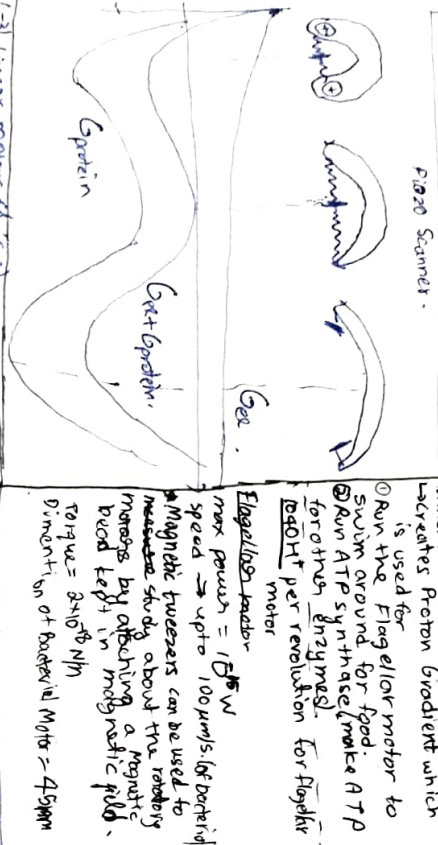 Piezo Scanner.
G protein
Gel + G protein.
Gel.
↳ creates Proton Gradient which
is used for
① Run the Flagellar motor to
swim around for food.
② Run ATP synthase (make ATP
for other enzymes).
1040 H⁺ per revolution for flagellar
motor
Flagellar motor
max power = 10⁻¹⁵ W
speed → upto 100 μm/s. (of bacteria)
Magnetic tweezers can be used to
study about the rotatory
motors by attaching a magnetic
bead kept in magnetic field.
Torque = N/m
Dimention of Bacterial Motor = 45nm